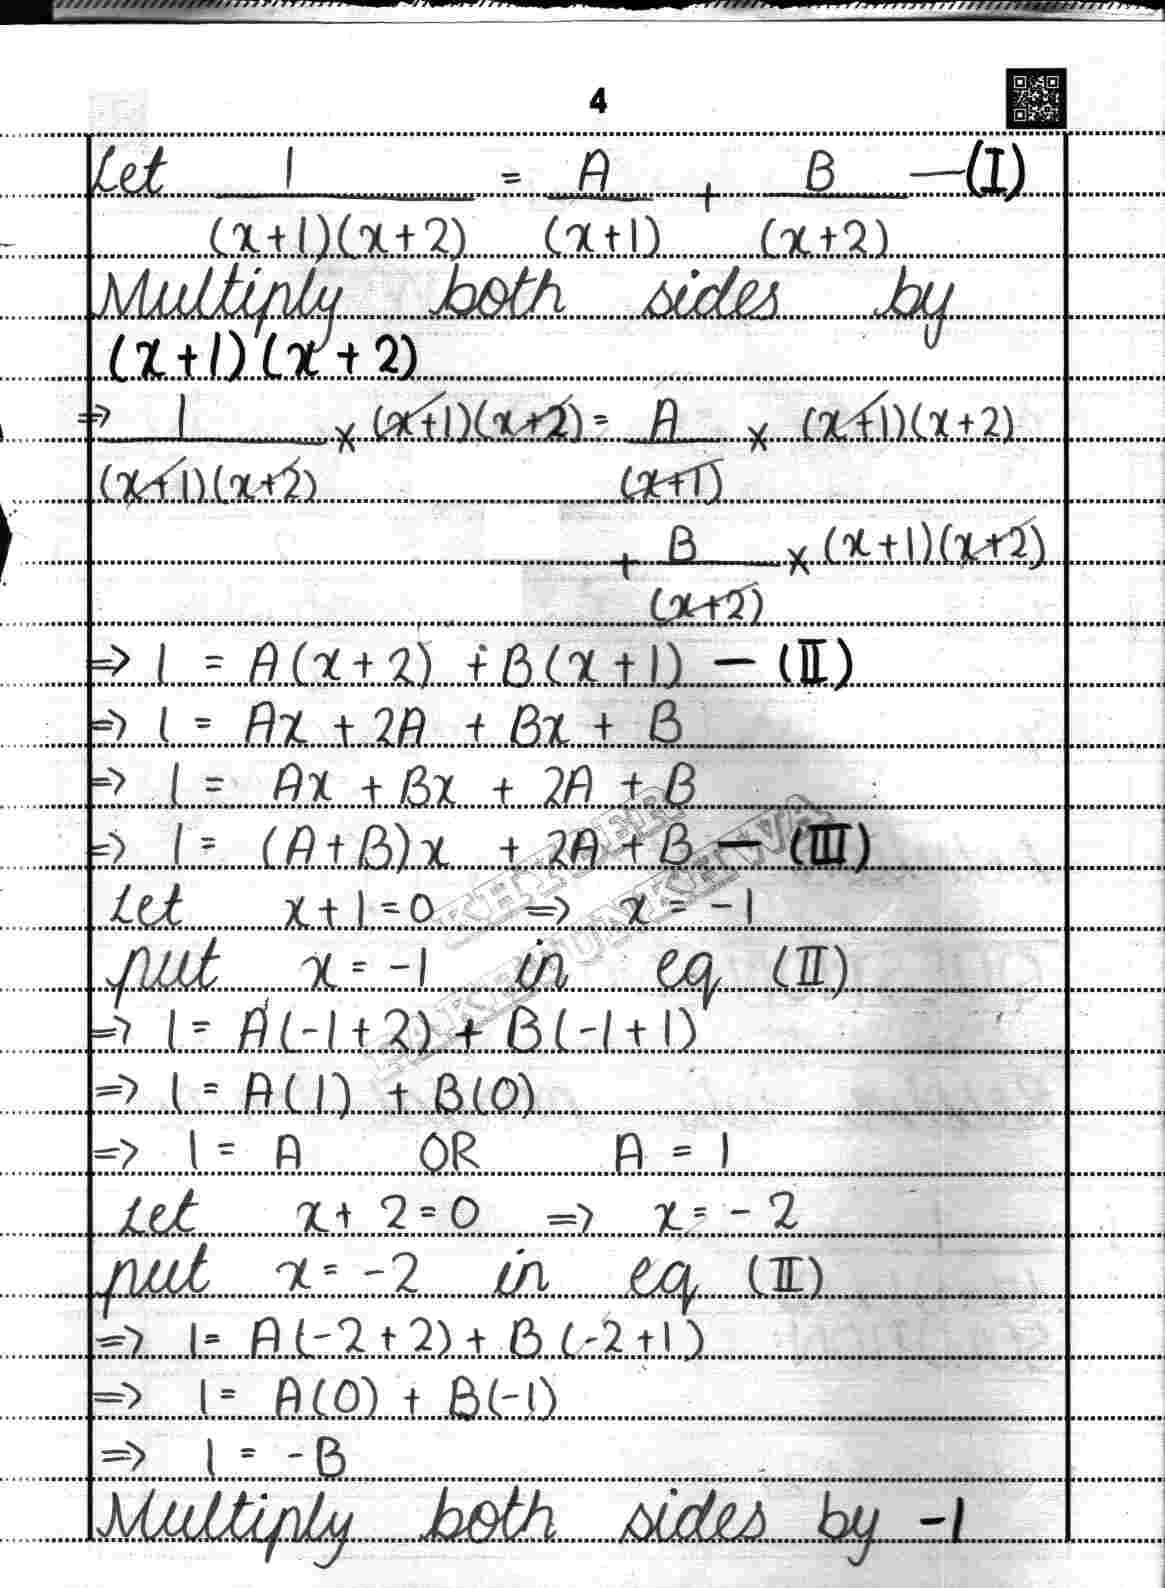 4
Let 1/(x+1)(x+2) = A/(x+1) + B/(x+2) —(I)
Multiply both sides by
(x+1)(x+2)
⇒ 1/(x+1)(x+2) × (x+1)(x+2) = A/(x+1) × (x+1)(x+2)
+ B/(x+2) × (x+1)(x+2)
⇒ 1 = A(x+2) + B(x+1) — (II)
⇒ 1 = Ax + 2A + Bx + B
⇒ 1 = Ax + Bx + 2A + B
⇒ 1 = (A+B)x + 2A + B — (III)
Let x+1=0 ⇒ x = -1
put x = -1 in eq (II)
⇒ 1 = A(-1+2) + B(-1+1)
⇒ 1 = A(1) + B(0)
⇒ 1 = A OR A = 1
Let x+2=0 ⇒ x = -2
put x = -2 in eq (II)
⇒ 1 = A(-2+2) + B(-2+1)
⇒ 1 = A(0) + B(-1)
⇒ 1 = -B
Multiply both sides by -1
KHYBER
PAKHTUNKHWA